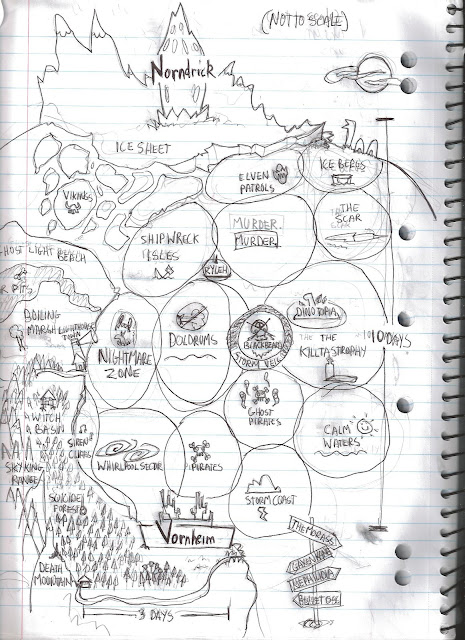 (NOT TO SCALE)
Norndrick
ICE SHEET
ELVEN
PATROLS
ICE BERGS
VIKINGS
THE
SCAR
MURDER.
MURDER.
SHIPWRECK
ISLES
GHOST LIGHT BEACH
RYLEH
R PITS
BOILING
MARSH LIGHTHOUSE
TOWN
DINOTOPIA
DOLDRUMS
BLACKBEARD
STORM VEIL
THE THE
KILLTASTROPHY
10 DAYS
NIGHTMARE
ZONE
GHOST
PIRATES
WITCH
BASIN
SIREN
CLIFFS
CALM
WATERS
SKY KING
RANGE
WHIRLPOOL SECTOR
PIRATES
SUICIDE
FOREST
STORM COAST
Vornheim
THE MORASS
DEATH
MOUNTAIN
3 DAYS